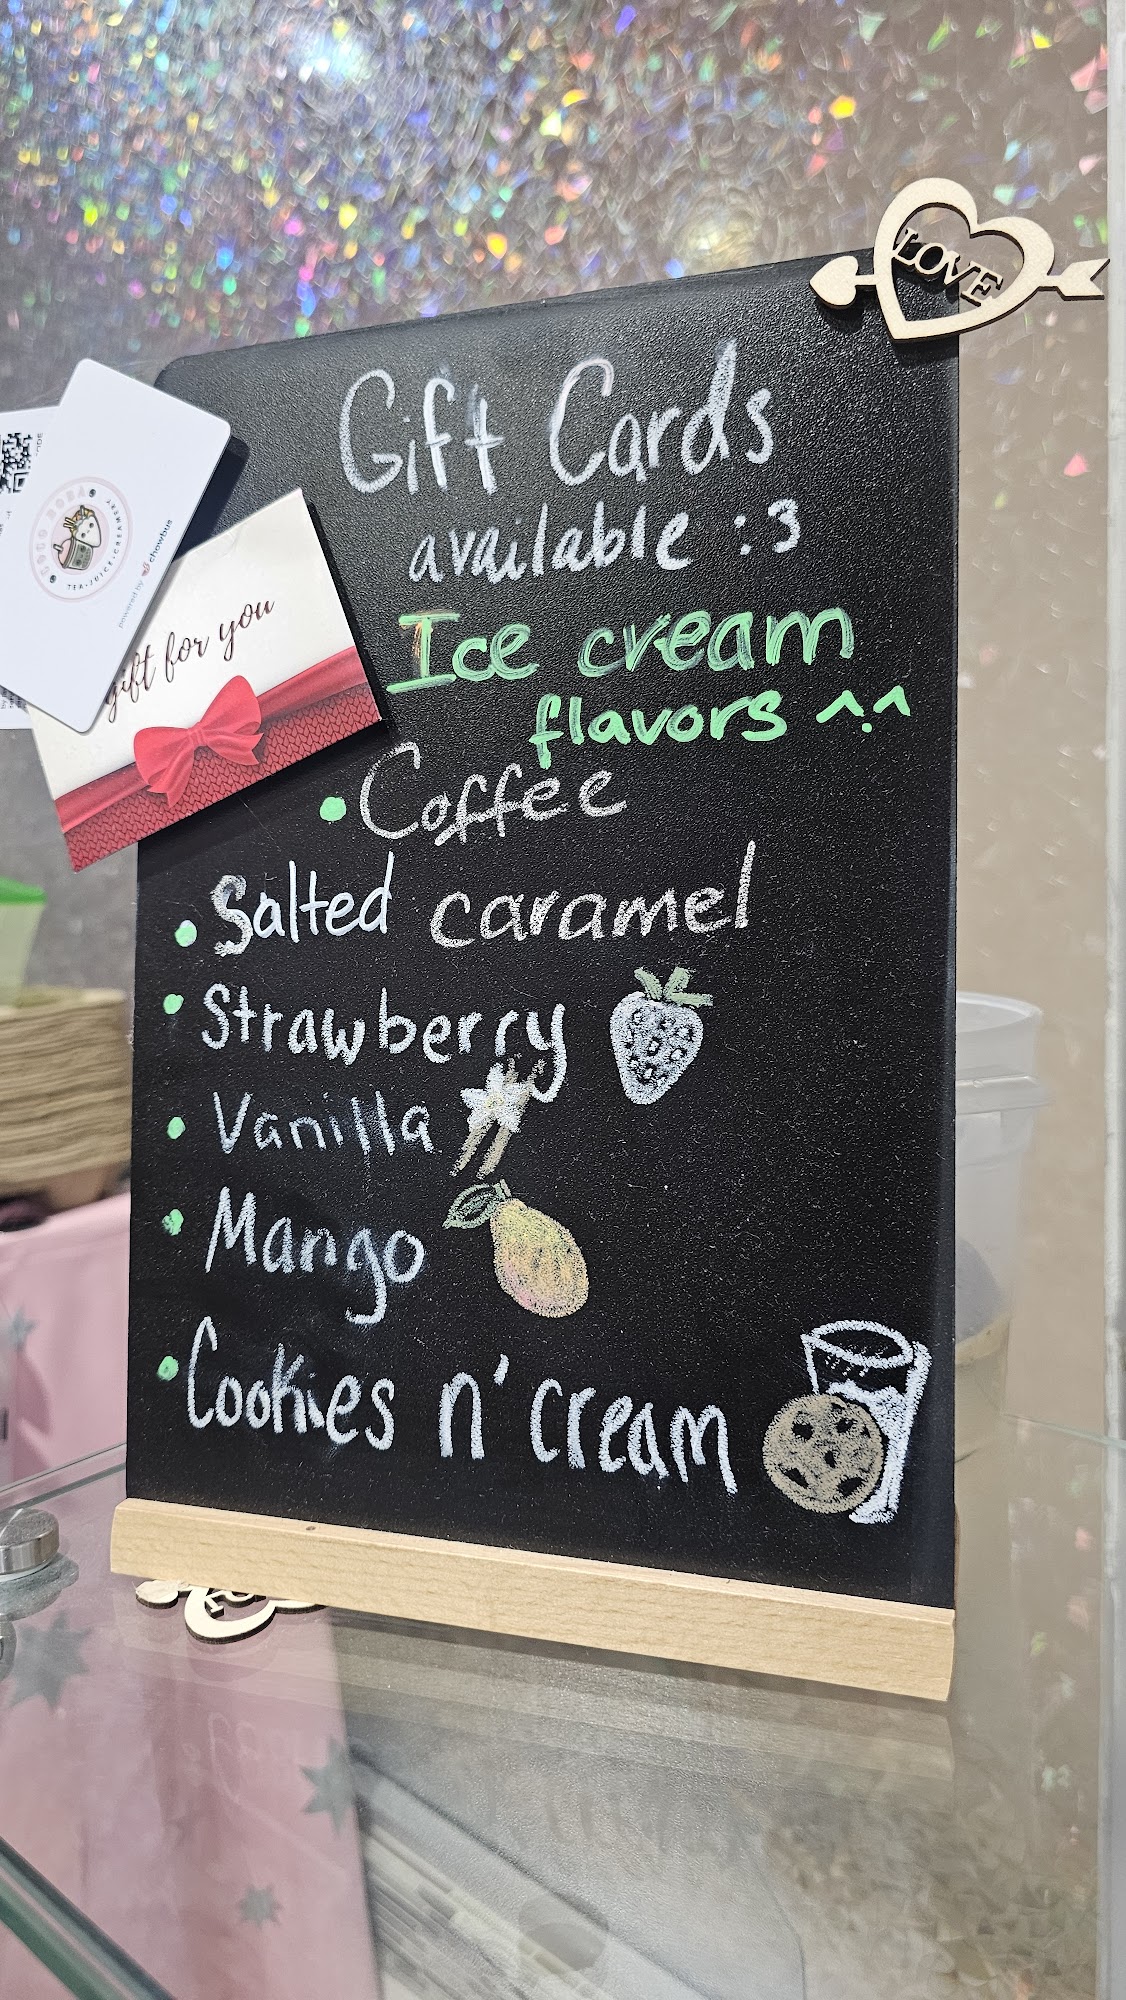 LOVE
Gift Cards
available :3
Ice cream
flavors ^.^
• Coffee
• Salted caramel
• Strawberry
• Vanilla
• Mango
• Cookies n' cream
TEA•JUICE•CREAMERY
powered by chowbus
gift for you